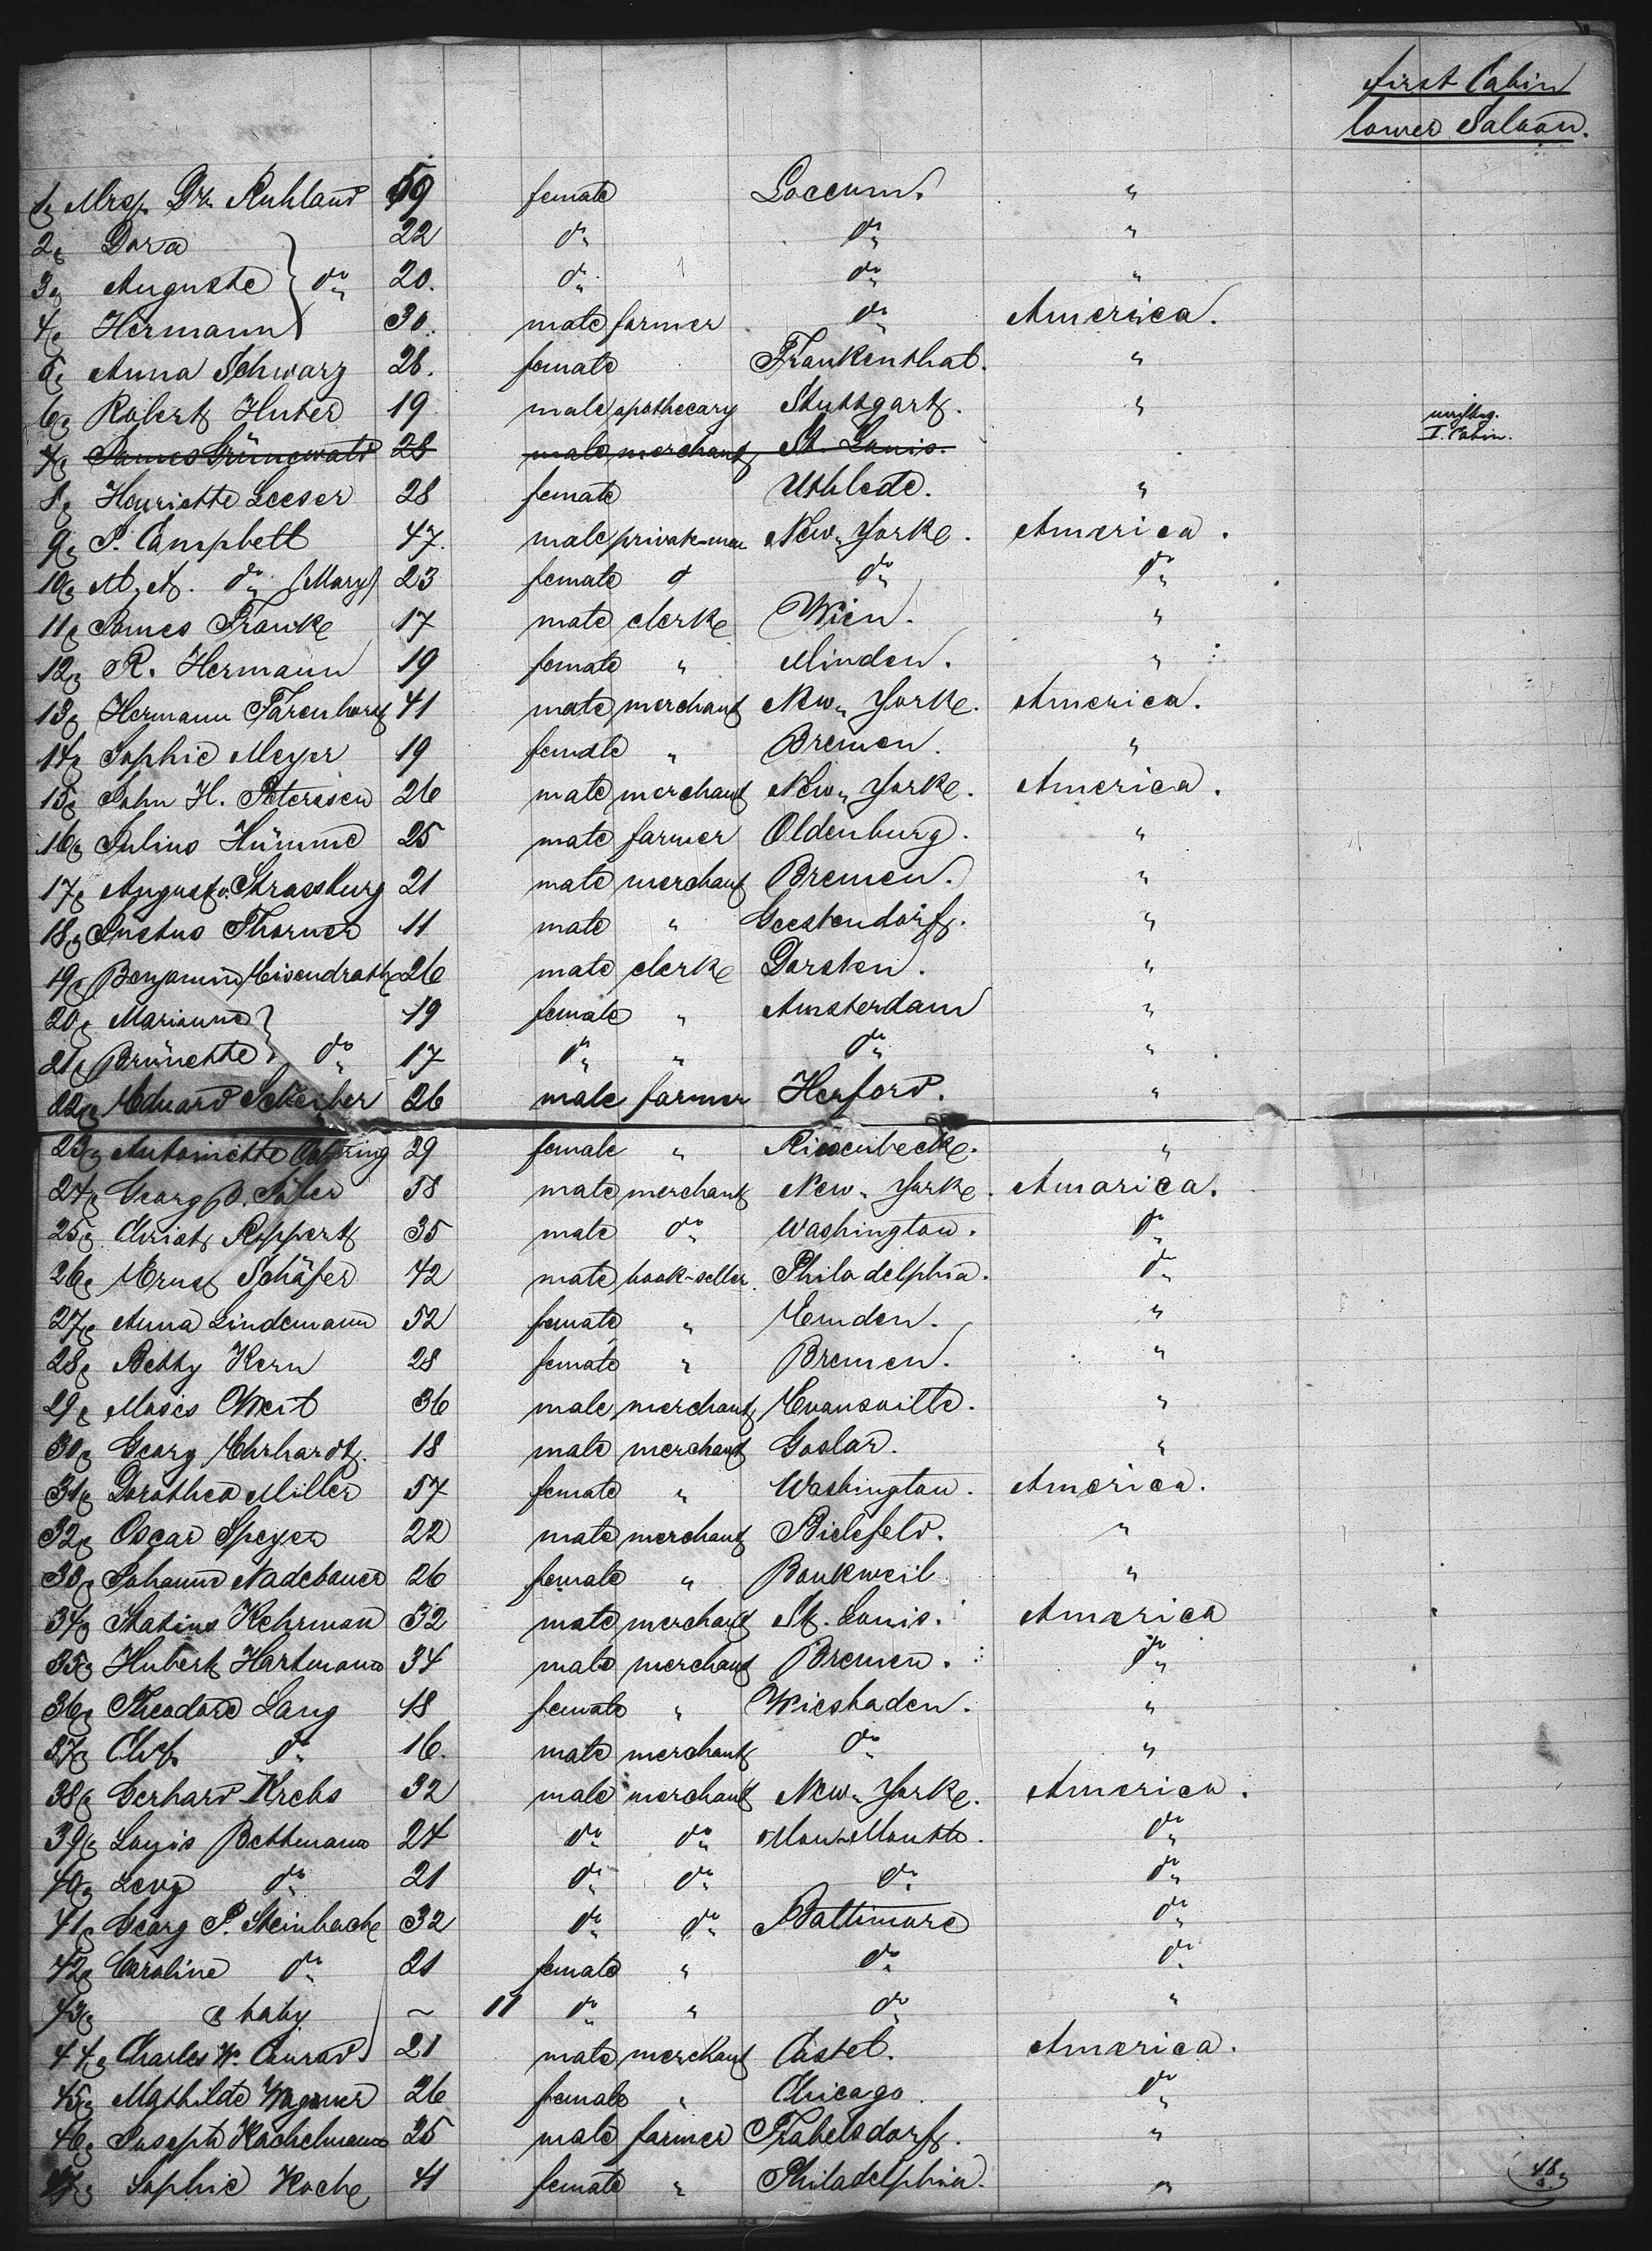 First Cabin
lower Saloon.
1, Mrs. Dr. Ruhland 59 female Loccum. "
2, Dora 22 do do "
3, Auguste } do 20. do do "
4, Hermann 30. male farmer do America.
5, Anna Schwarz 28. female Frankenthal. "
6, Robert Huter 19 male apothecary Stuttgart. "
7, James Grünewald 28 male merchant St. Louis. I. Cabin.
8, Henriette Leeser 28 female Uthlede. "
9, P. Campbell 47. male private-man New-York. America.
10, M. A. do (Mary) 23 female d do do
11, James Franke 17 male clerk Wien. "
12, R. Hermann 19 female " Minden. "
13, Hermann Farenhorst 41 male merchant New-York. America.
14, Sophie Meyer 19 female " Bremen. "
15, John H. Petersen 26 male merchant New-York. America.
16, Julius Hümme 25 male farmer Oldenburg. "
17, August v. Strassburg 21 male merchant Bremen. "
18, Justus Thorner 11 male " Geestendorf. "
19, Benjamin Eisendrath 26 male clerk Dorsten. "
20, Marianne } 19 female " Amsterdam "
21, Brünette } do 17 do " do "
22, Eduard Schreiber 26 male farmer Herford. "
23, Antoinette 29 female " Riesenbeck. "
24, Georg P. 58 male merchant New-York. America.
25, Christ. Ruppert 35 male do Washington. do
26, Ernst Schäfer 42 male book-seller Philadelphia. do
27, Anna Lindemann 52 female " Emden. "
28, Betty Kern 28 female " Bremen. "
29, Moses Weil 36 male merchant Evansville. "
30, Georg Ehrhardt. 18 male merchant Goslar. "
31, Dorothea Miller 57 female " Washington. America.
32, Oscar Speyer 22 male merchant Bielefeld. "
33, Johanne Nadebauer 26 female " Baukweil "
34, Statius Kehrman 32 male merchant St. Louis. America
35, Hubert Hartmann 34 male merchant Bremen. do
36, Theodore Lang 18 female " Wiesbaden. "
37, Chs. do 16. male merchant do "
38, Gerhard Krebs 32 male merchant New-York. America.
39, Louis Bettmann 24 do do do
40, Levy do 21 do do do do
41, Georg P. Steinbach 32 do do Baltimore do
42, Caroline do 21 female " do do
43, & baby ~ 11 do " do "
44, Charles W. Conrad 21 male merchant Cassel. America.
45, Mathilde Wagener 26 female " Chicago do
46, Joseph Kachelmann 25 male farmer Trabelsdorf. "
47, Sophie Koch 41 female " Philadelphia. "
48